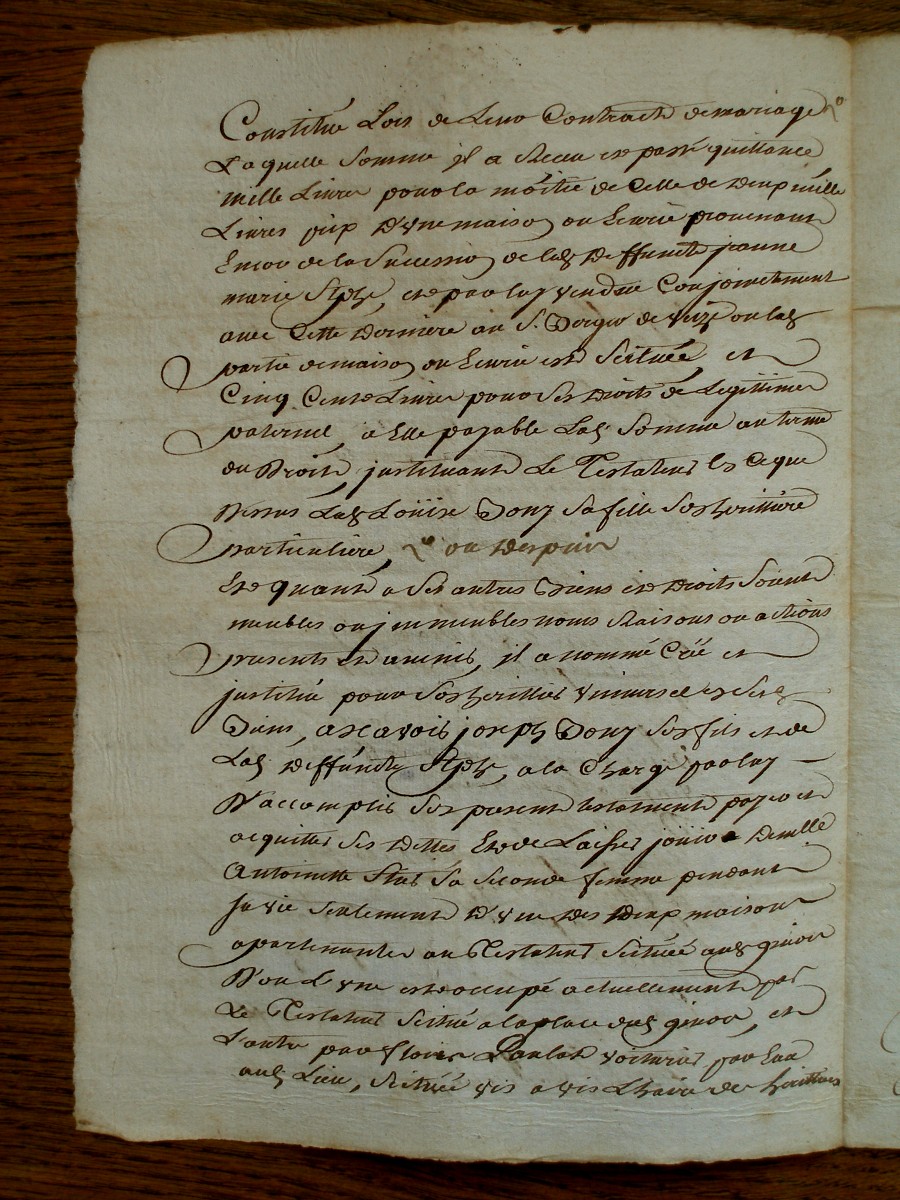 Constitué Lors de Leur Contract de mariage
Laquelle Somme il a Receu et passé quittance
mille Livres pour la moitié de Celle de Deux mille
Livres prix D'une maison ou Ecurie provenant
Encor de la Succession de lad Deffuncte jeanne
marie, et par luy vendue Conjoinctement
avec Cette Derniere au S. de ou lad
partie de maison ou Ecurie est Scituée et
Cinq Cents Livres pour Ses Droits de Legittime
paternel, a Elle payable Lad Somme au terme
du Droit, justituant Le Testateur En Ce que
Dessus Lad Louise Sa fille Son herittiere
particuliere, ou Despuis
Et quant a Ses autres Biens et Droits Soient
meubles ou jmmeubles noms Raisons ou actions
presents et avenir, il a nommé Créé et
justitué pour Son herittier universel en Sesd
Biens, a scavoir joseph Son fils et de
Lad Deffuncte, a la Charge par luy
D'accomplir Son present testament payer et
acquitter Ses Dettes Et de Laisser jouir Demlle
Antoinette Sa Seconde femme pendant
Sa vie Seulement D'une Des Deux maisons
apartenantes au Testateur Scituée aud
Dont L'une est occupé actuellement par
Le Testateur Scitué a la place dud, et
L'autre par voiturier par Eau
aud Lieu, Scituée vis a vis de